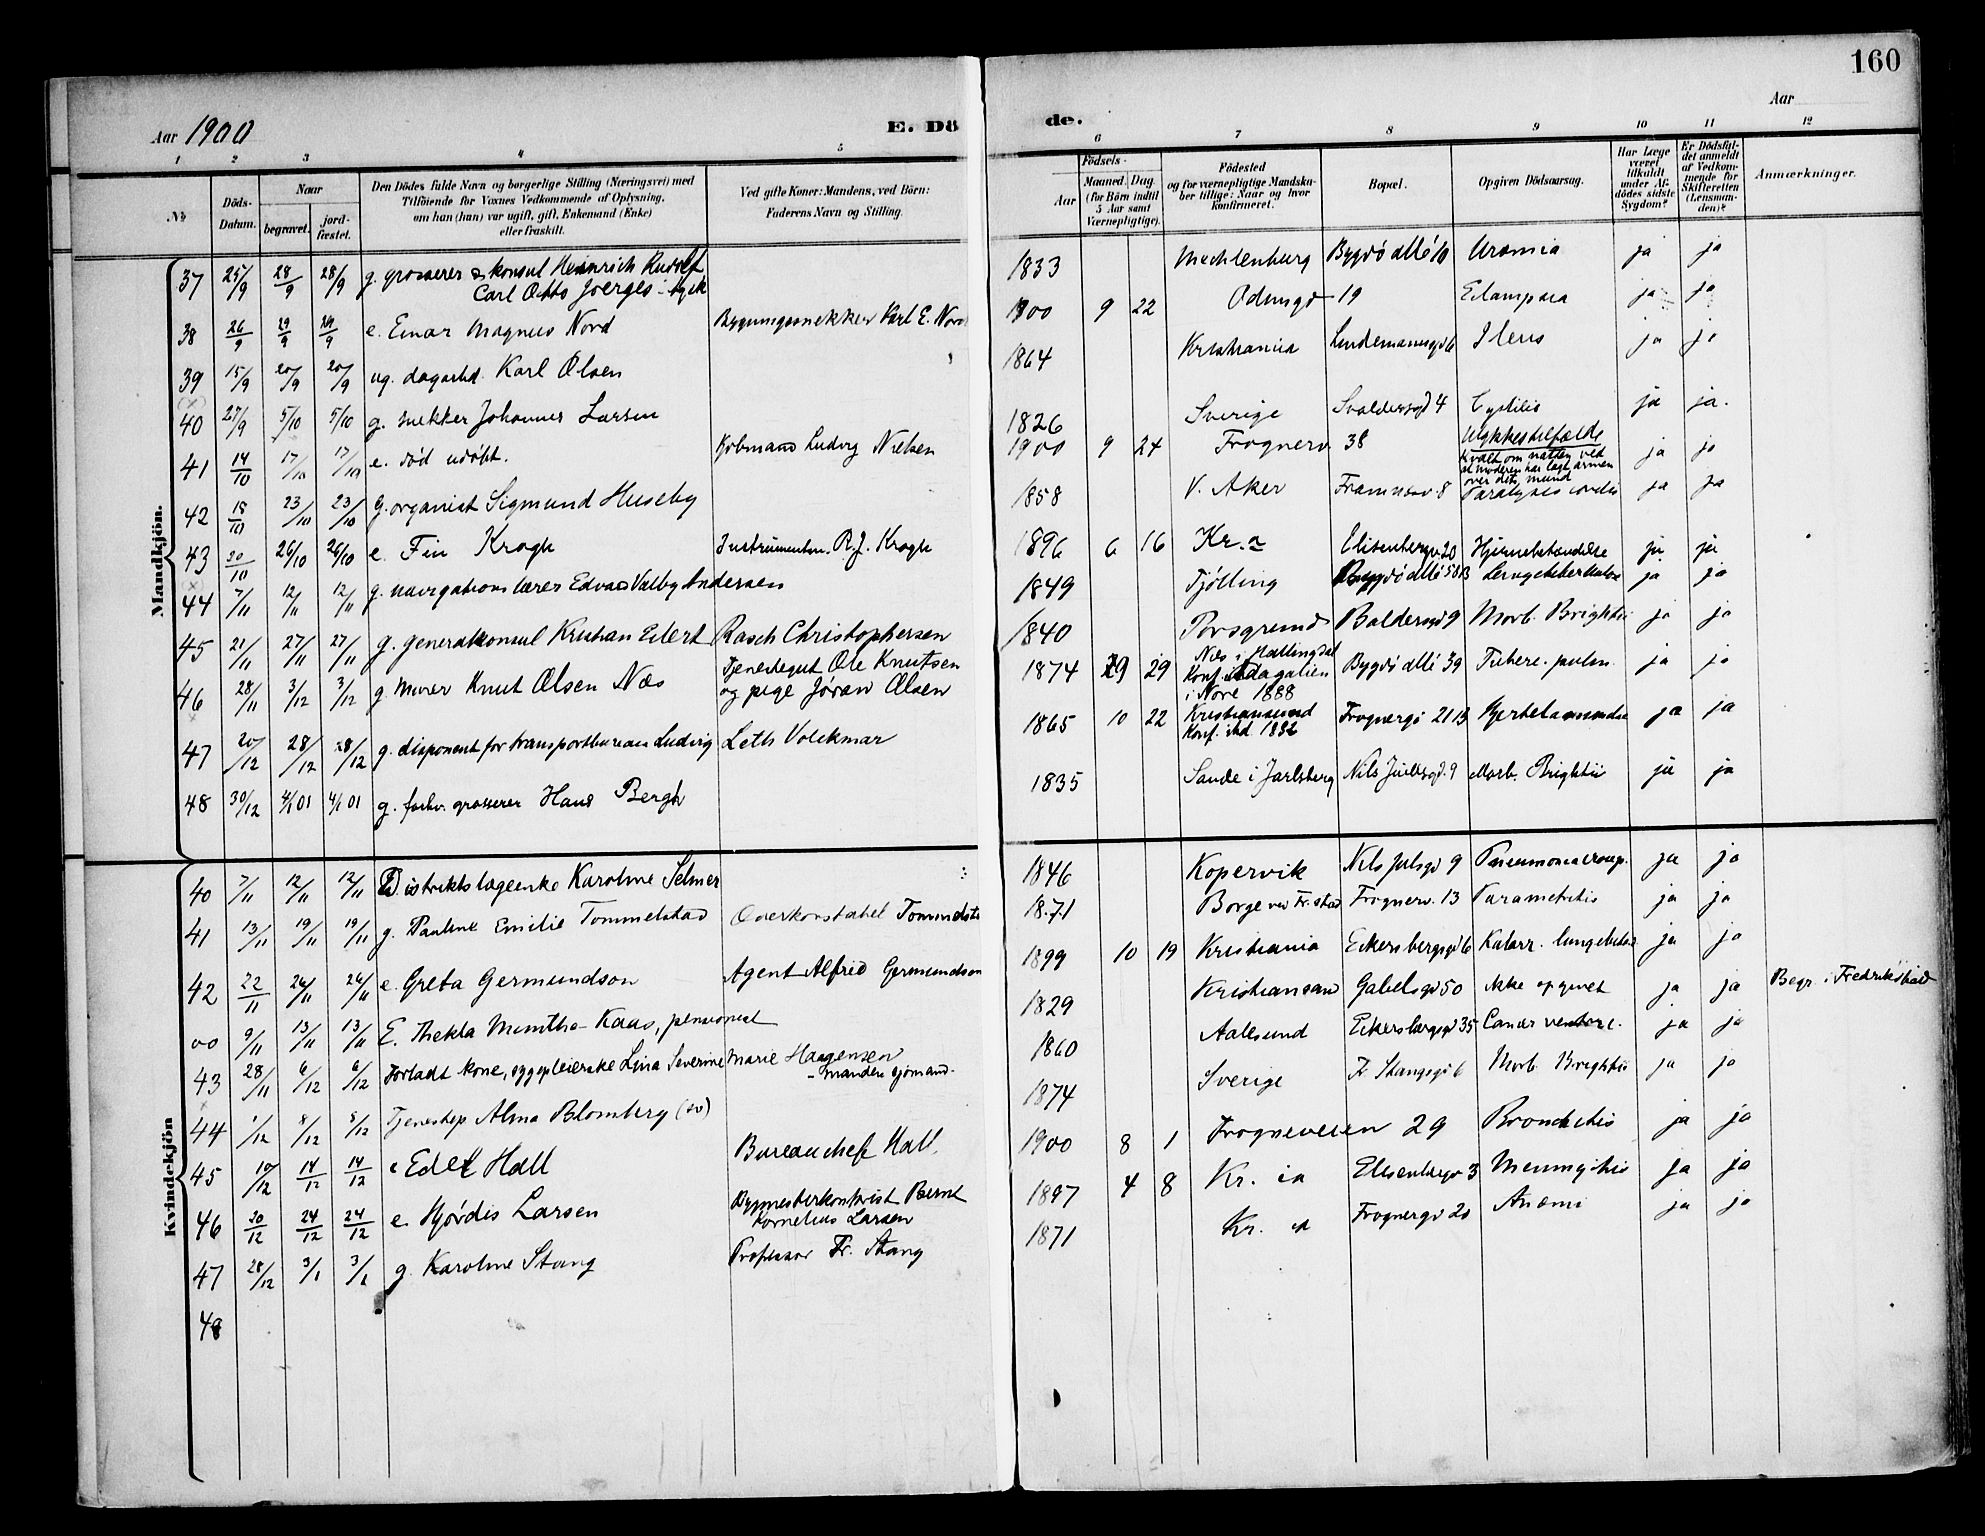 160
Aar 1900
E. Dö
de.
Aar
1 2 3 4 5 6 7 8 9 10 11 12
No
Döds-
Datum.
Naar
begravet.
jord-
fæstet.
Den Dödes fulde Navn og borgerlige Stilling (Næringsvei) med
Tilföiende for Voxnes Vedkommende af Oplysning,
om han (hun) var ugift, gift, Enkemand (Enke)
eller fraskilt.
Ved gifte Koner: Mandens, ved Börn:
Faderens Navn og Stilling.
Födsels-
Aar
Maaned. Dag.
(for Börn indtil
5 Aar samt
Værnepligtige).
Födested
og for værnepligtige Mandska-
ber tillige: Naar og hvor
konfirmeret.
Bopæl.
Opgiven Dödsaarsag.
Har Læge
været
tilkaldt
under Af-
dödes sidste
Sygdom?
Er Dödsfal-
det anmeldt
af Vedkom-
mende for
Skifteretten
(Lensman-
den)?
Anmærkninger.
Mandkjön.
37 25/9 28/9 28/9 g. grosserer & konsul Heinrich Rudolf
Carl Otto Joerges 1833 Mechlenburg Bygdö allé 10 Uræmia ja ja
38 26/9 29/9 29/9 e. Einar Magnus Nord Bygningssnekker Karl E. Nord 1900 9 22 Odinsgd 19 Eclampsia ja ja
39 15/9 20/9 20/9 ug. dagarbd. Karl Olsen 1864 Kristiania Lindemannsgd 6 Ileus ja ja
40 27/9 5/10 5/10 g. snekker Johannes Larsen 1826 Sverige Svoldersgd 4 Cystitis ja ja.
41 14/10 17/10 17/10 e. död udöbt. Kjöbmand Ludvig Nielsen 1900 9 24 Frognerv. 38 Ulykkestilfælde
Kvalt om natten ved
at moderen har lagt armen
over dets mund ja ja
42 18/10 23/10 23/10 g. organist Sigmund Huseby 1858 V. Aker Framnesv 8 Paralysis cordis ja ja
43 20/10 26/10 26/10 e. Fin Krogh Instrumentm. R. J. Krogh 1896 6 16 Kr.a Elisenbergv. 20 Hjernebetændelse ja ja
44 7/11 12/11 12/11 g. navigationslærer Edvard Valby Andersen 1849 Tjölling Bygdö allé 58 B ja ja
45 21/11 27/11 27/11 g. generalkonsul Kristian Eilert Rasch Christophersen 1840 Porsgrund Baldersgd 9 Morb. Brightii ja ja
46 28/11 3/12 3/12 g. Murer Knut Olsen Næs Tjenestegut Ole Knutsen
og pige Jöran Olsen 1874 9 29 Næs i Hallingdal
Konf. i Dagalien
i Nore 1888 Bygdö allé 39 Tuberc. pulm. ja ja
47 20/12 28/12 28/12 g. disponent for transportbureau Ludvig Leth Volckmar 1865 10 22 Kristianssund
Konf. ibd 1882 Frognergd 21 B ja ja
48 30/12 4/1 01 4/1 01 g. forhv. grosserer Hans Bergh 1835 Sande i Jarlsberg Nils Juelsgd. 9 Morb. Brightii ja ja
Kvindekjön
40 7/11 12/11 12/11 Distriktslægeenke Karoline Selmer 1846 Kopervik Nils Julsgd 9 Pneumonia croup. ja ja
41 13/11 19/11 19/11 g. Pauline Emilie Tommelstad Overkonstabel Tommelsta 1871 Borge ved Fr.stad Frognerv. 13 Parametritis ja ja
42 22/11 26/11 26/11 e. Greta Germundson Agent Alfred Germundson 1899 10 19 Kristiania Eckersbergsgd 6 Katarr. lungebetæn ja ja
00 9/11 13/11 13/11 E. Thekla Munthe-Kaas, pensionist 1829 Kristiansand Gabelsgd 50 ikke opgivet ja ja Begr. i Fredrikstad
43 28/11 6/12 6/12 Forladt kone, sygepleierske Lina Severine Marie Haagensen
- manden sjömand. 1860 Aalesund Eckersbergsgd 35 Cancer ventric. ja ja
44 1/12 8/12 8/12 Tjenestep Alma Blomberg 1874 Sverige Fr. Stangsgd 6 Morb. Brightii ja ja
45 10/12 14/12 14/12 e Edel Hall Bureauchef Hall. 1900 8 1 Frogneveien 29 Bronchitis ja ja
46 20/12 24/12 24/12 e. Hjördis Larsen Bygmesterkontorist Bernt
Kornelius Larsen 1897 4 8 Kr. ia Elisenbergv 3 Meningitis ja ja
47 28/12 3/1 3/1 g. Karoline Stang Professor Fr. Stang 1871 Kr. a Frognergd 20 Anæmi ja ja
48